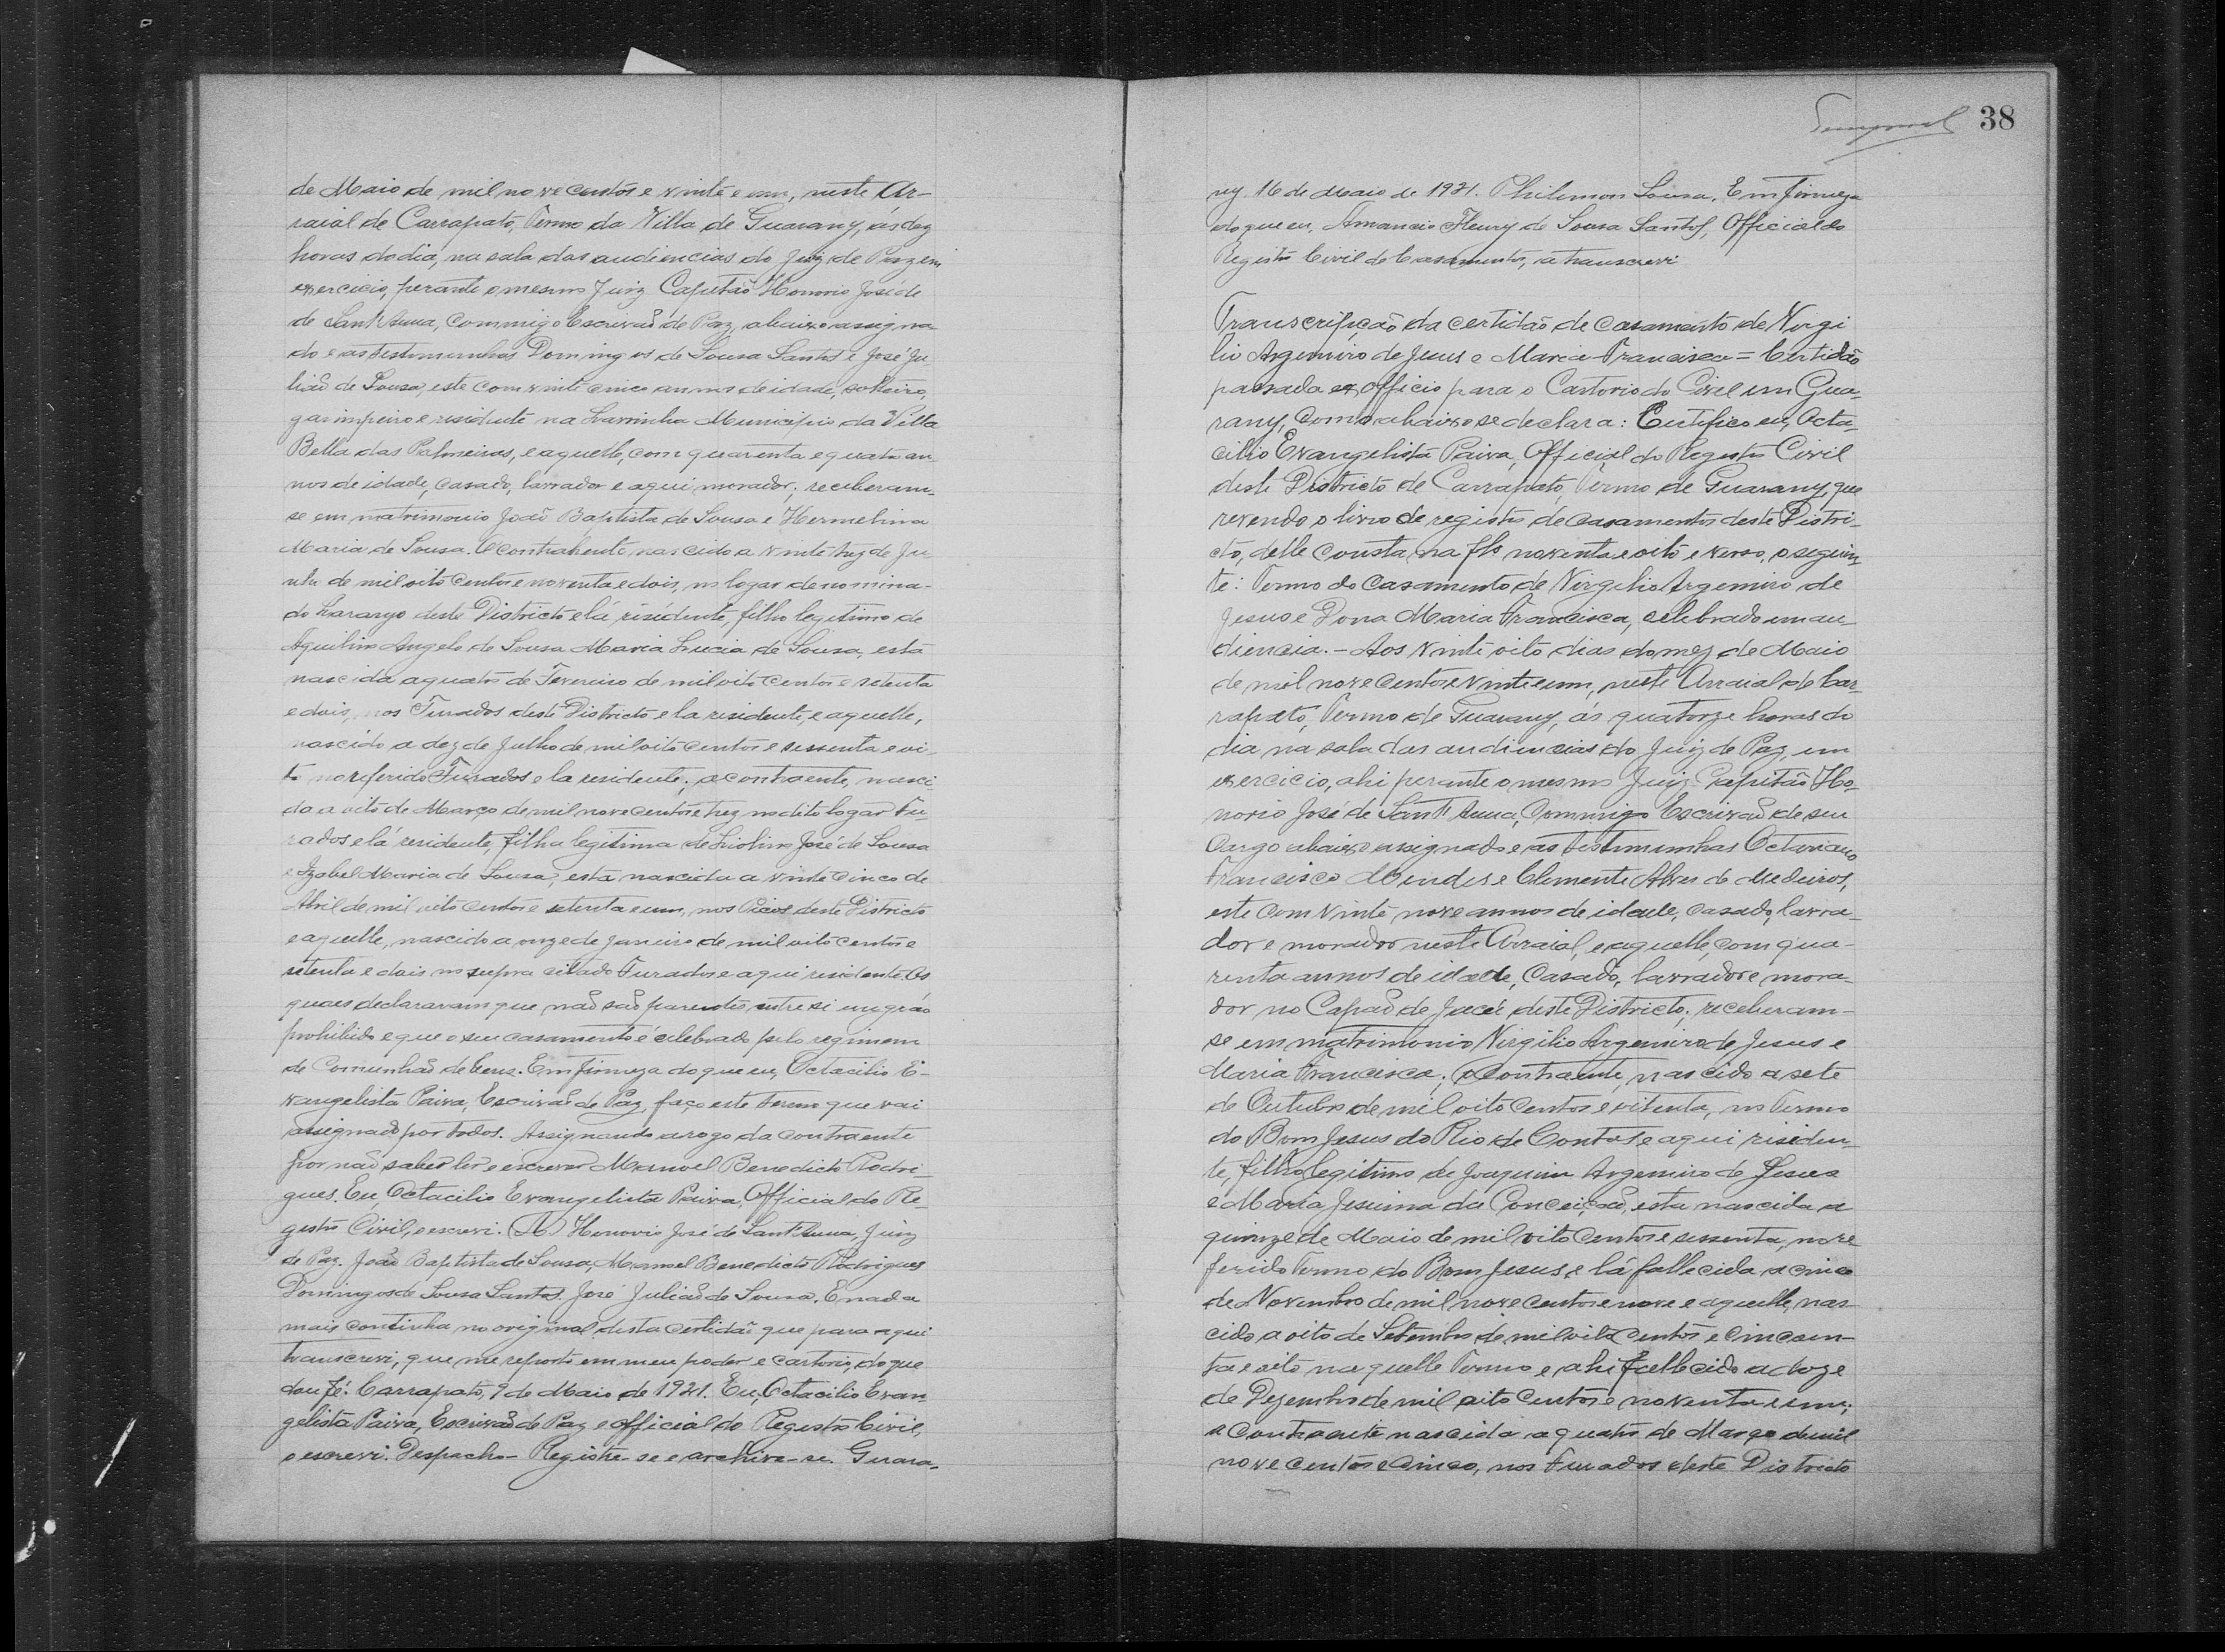 de Maio de mil novecentos e vinte e um, neste Ar-
raial de Carrapato, Termo da Villa de Guarany, ás dez
horas do dia, na sala das audiencias do Juiz de Paz em
exercicio, perante o mesmo Juiz Capitão Honorio José de
de Sant'Anna, Commigo Escrivaõ de Paz, abaixo assigna-
do e as testemunhas Domingos de Sousa Santos e José Ju-
liaõ de Sousa, este com vinte cinco annos de idade, solteiro,
garimpeiro e residente na Municipio da Villa
Bella das Palmeiras, e aquelle, com quarenta e quatro an-
nos de idade, casado, lavrador e aqui morador; receberam-
se em matrimonio Joaõ Baptista de Sousa e Hermelina
Maria de Sousa. O Contrahente nascido a vinte trez de Ju
nho de mil oito centos e noventa e dois, no logar denomina-
do Laranjo deste Districto e lá residente, filho legitimo de
Aquilino Angelo de Sousa Maria Lucia de Sousa, esta
nascida a quatro de Fevereiro de mil oito centos e setenta
e dois, nos Furados deste Districto e la residente, e aquelle,
nascido a dez de Julho de mil oito centos e sessenta e oi-
to no referido Furados e la residente; a contraente, nasci-
da a oito de Março de mil nove centos e trez no dito logar Fu-
rados e lá residente, filha legitima de Liolino José de Sousa
e Izabel Maria de Sousa, esta nascida a vinte cinco de
Abril de mil oito centos e setenta e um, nos Picos deste Districto
e aquelle, nascido a onze de Janeiro de mil oito centos e
setenta e dois no supra citado Furados e aqui residente. Os
quaes declaravam que naõ saõ parentes entre si em gráo
prohibido e que o seu casamento é celebrado pelo regimem
de Comunhaõ de bens. Em firmeza do que eu, Octacilio E-
vangelista Paiva, Escrivaõ de Paz, faço este termo que vai
assignado por todos. Assignando a rogo da contraente
por naõ saber ler e escrever Manoel Benedicto Rodri-
gues. Eu, Octacilio Evangelista Paiva, Official do Re-
gistro Civil, o escrevi. (A) Honorio José de Sant'Anna, Juiz
de Paz. Joaõ Baptista de Sousa, Manoel Benedicto Rodrigues
Domingos de Sousa Santos. José Juliaõ de Sousa. E nada
mais continha no original desta certidaõ que para aqui
transcrevi, que me reporto em meu poder e cartorio, do que
dou fé. Carrapato, 9 de Maio de 1921. Eu, Octacilio Evan-
gelista Paiva, Escrivaõ de Paz e official do Registro Civil,
o escrevi. Despacho- Registre-se e archive-se. Guara-
38
ny 16 de Maio de 1921. Philemon Sousa. Em firmeza
do que eu, Amancio Fleury de Sousa Santos, Official do
Registro Civil de Casamentos, a transcrevi
Transcripção da certidão de casamento de Virgi
lio Argemiro de Jesus e Maria Francisca = Certidão
passada ex officio para o Cartorio do Civel em Gua-
rany, como abaixo se declara: Certifico eu, Octa-
cilio Evangelista Paiva, Official do Registro Civil
deste Districto de Carrapato, Termo de Guarany, que
revendo o livro de registro de casamentos deste Distri-
cto, delle consta, na fls noventa e oito e verso, o seguin-
te: Termo do casamento de Virgilio Argemiro de
Jesus e Dona Maria Francisca, celebrado em au-
diencia. - Aos vinte oito dias do mez de Maio
de mil nove centos e vinte e um, neste Arraial de Car-
rapato, Termo de Guarany, ás quatorze horas do
dia na sala das audiencias do Juiz de Paz, em
exercicio, ahi perante o mesmo Juiz Capitão Ho-
norio José de Sant'Anna, Commigo Escrivaõ de seu
Cargo abaixo assignado e as testemunhas Octaviano
Francisco Mendes e Clemente Alves de Medeiros,
este com vinte nove annos de idade, casado, lavra-
dor e morador neste Arraial, e aquelle, com qua-
renta annos de idade, casado, lavrador e mora-
dor no Capaõ do Jacaré deste Districto; receberam-
se em matrimonio Virgilio Argemiro de Jesus e
Maria Francisca; o Contraente, nascido a sete
de Outubro de mil oito centos e oitenta, no Termo
do Bom Jesus do Rio de Contas e aqui residen-
te, filho legitimo de Joaquim Argemiro de Jesus
e Maria Jesuina da Conceiçaõ, esta nascida a
quinze de Maio de mil oito centos e sessenta, no re
ferido Termo do Bom Jesus, e lá fallecida a cinco
de Novembro de mil nove centos e nove e aquelle, nas-
cido a oito de Setembro de mil oito centos e cincoen-
ta e oito naquelle Termo e ahi fallecido a doze
de Dezembro de mil oito centos e noventa e um;
a Contraente nascida a quatro de Março de mil
nove centos e cinco, nos Furados deste Districto